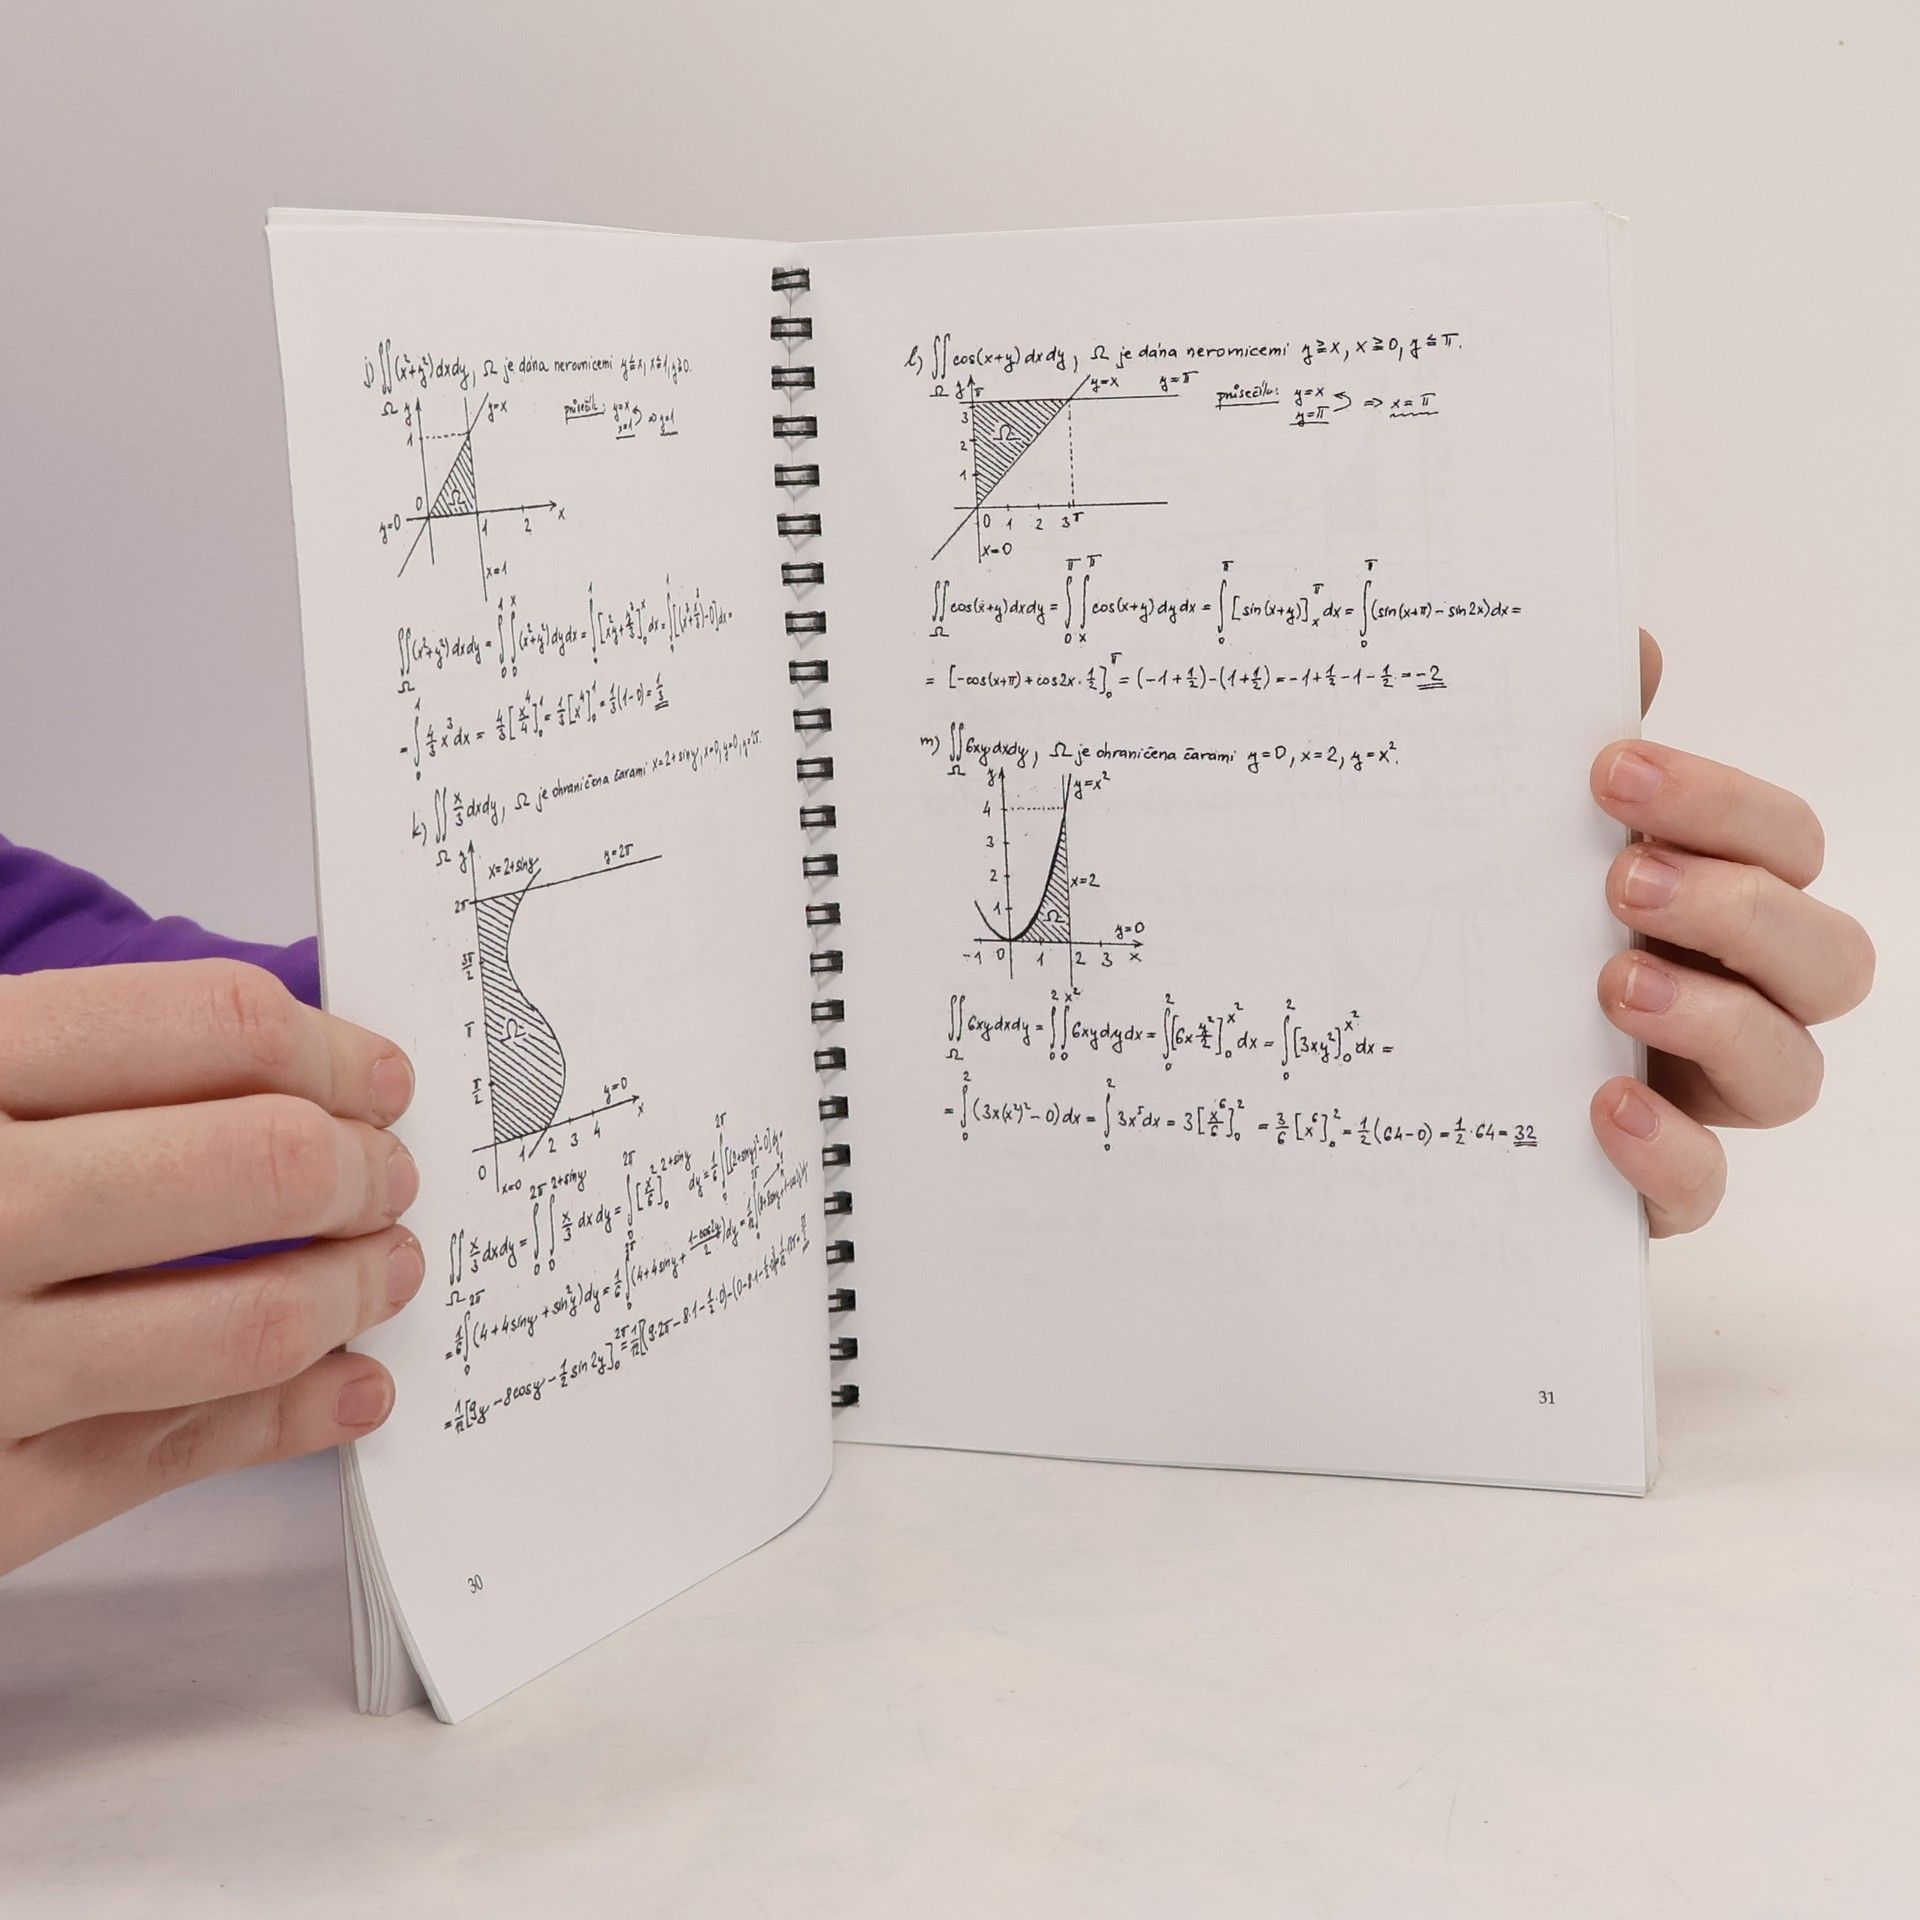 j) ∬(x²+y²)dxdy, Ω je dána nerovnicemi y≦x, x≦1, y≧0.
Ω
y
y=x
průsečík: y=x
x=1 => y=1
1
0
Ω
y=0
1 2 x
x=1
∬(x²+y²)dxdy = ∫₀¹∫₀ˣ(x²+y²)dydx = ∫₀¹[x²y+y³/3]₀ˣdx = ∫₀¹[(x³+x³/3)-0]dx =
Ω
= ∫₀¹ 4/3 x³dx = 4/3[x⁴/4]₀¹ = 1/3[x⁴]₀¹ = 1/3(1-0) = 1/3
k) ∬ x/3 dxdy, Ω je ohraničena čarami x=2+siny, x=0, y=0, y=2π.
Ω
y
x=2+siny
y=2π
2π
3π/2
π
Ω
π/2
y=0
x
0 1 2 3 4
x=0
∬ x/3 dxdy = ∫₀^2π ∫₀^2+siny x/3 dxdy = ∫₀^2π [x²/6]₀^2+siny dy = 1/6 ∫₀^2π [(2+siny)²-0]dy =
Ω
= 1/6 ∫₀^2π (4+4siny+sin²y)dy = 1/6 ∫₀^2π (4+4siny+ (1-cos2y)/2)dy = 1/12 ∫₀^2π
= 1/12[9y-8cosy-1/2 sin2y]₀^2π = 1/12[(9·2π-8·1-1/2·0)-(0-8·1-1/2·0)]
30
l) ∬cos(x+y)dxdy, Ω je dána nerovnicemi y≧x, x≧0, y≦π.
Ω
y π
y=x
y=π
průsečík: y=x
y=π => x=π
3
Ω
2
1
0 1 2 3 π
x=0
∬cos(x+y)dxdy = ∫₀^π ∫ₓ^π cos(x+y)dydx = ∫₀^π [sin(x+y)]ₓ^π dx = ∫₀^π (sin(x+π)-sin2x)dx =
Ω
= [-cos(x+π)+cos2x·1/2]₀^π = (-1+1/2)-(1+1/2) = -1+1/2-1-1/2 = -2
m) ∬6xydxdy, Ω je ohraničena čarami y=0, x=2, y=x².
Ω
y
y=x²
4
3
2
x=2
1
Ω
y=0
-1 0 1 2 3 x
∬6xydxdy = ∫₀²∫₀^x² 6xydydx = ∫₀²[6x y²/2]₀^x² dx = ∫₀²[3xy²]₀^x² dx =
Ω
= ∫₀²(3x(x²)²-0)dx = ∫₀² 3x⁵dx = 3[x⁶/6]₀² = 3/6[x⁶]₀² = 1/2(64-0) = 1/2·64 = 32
31